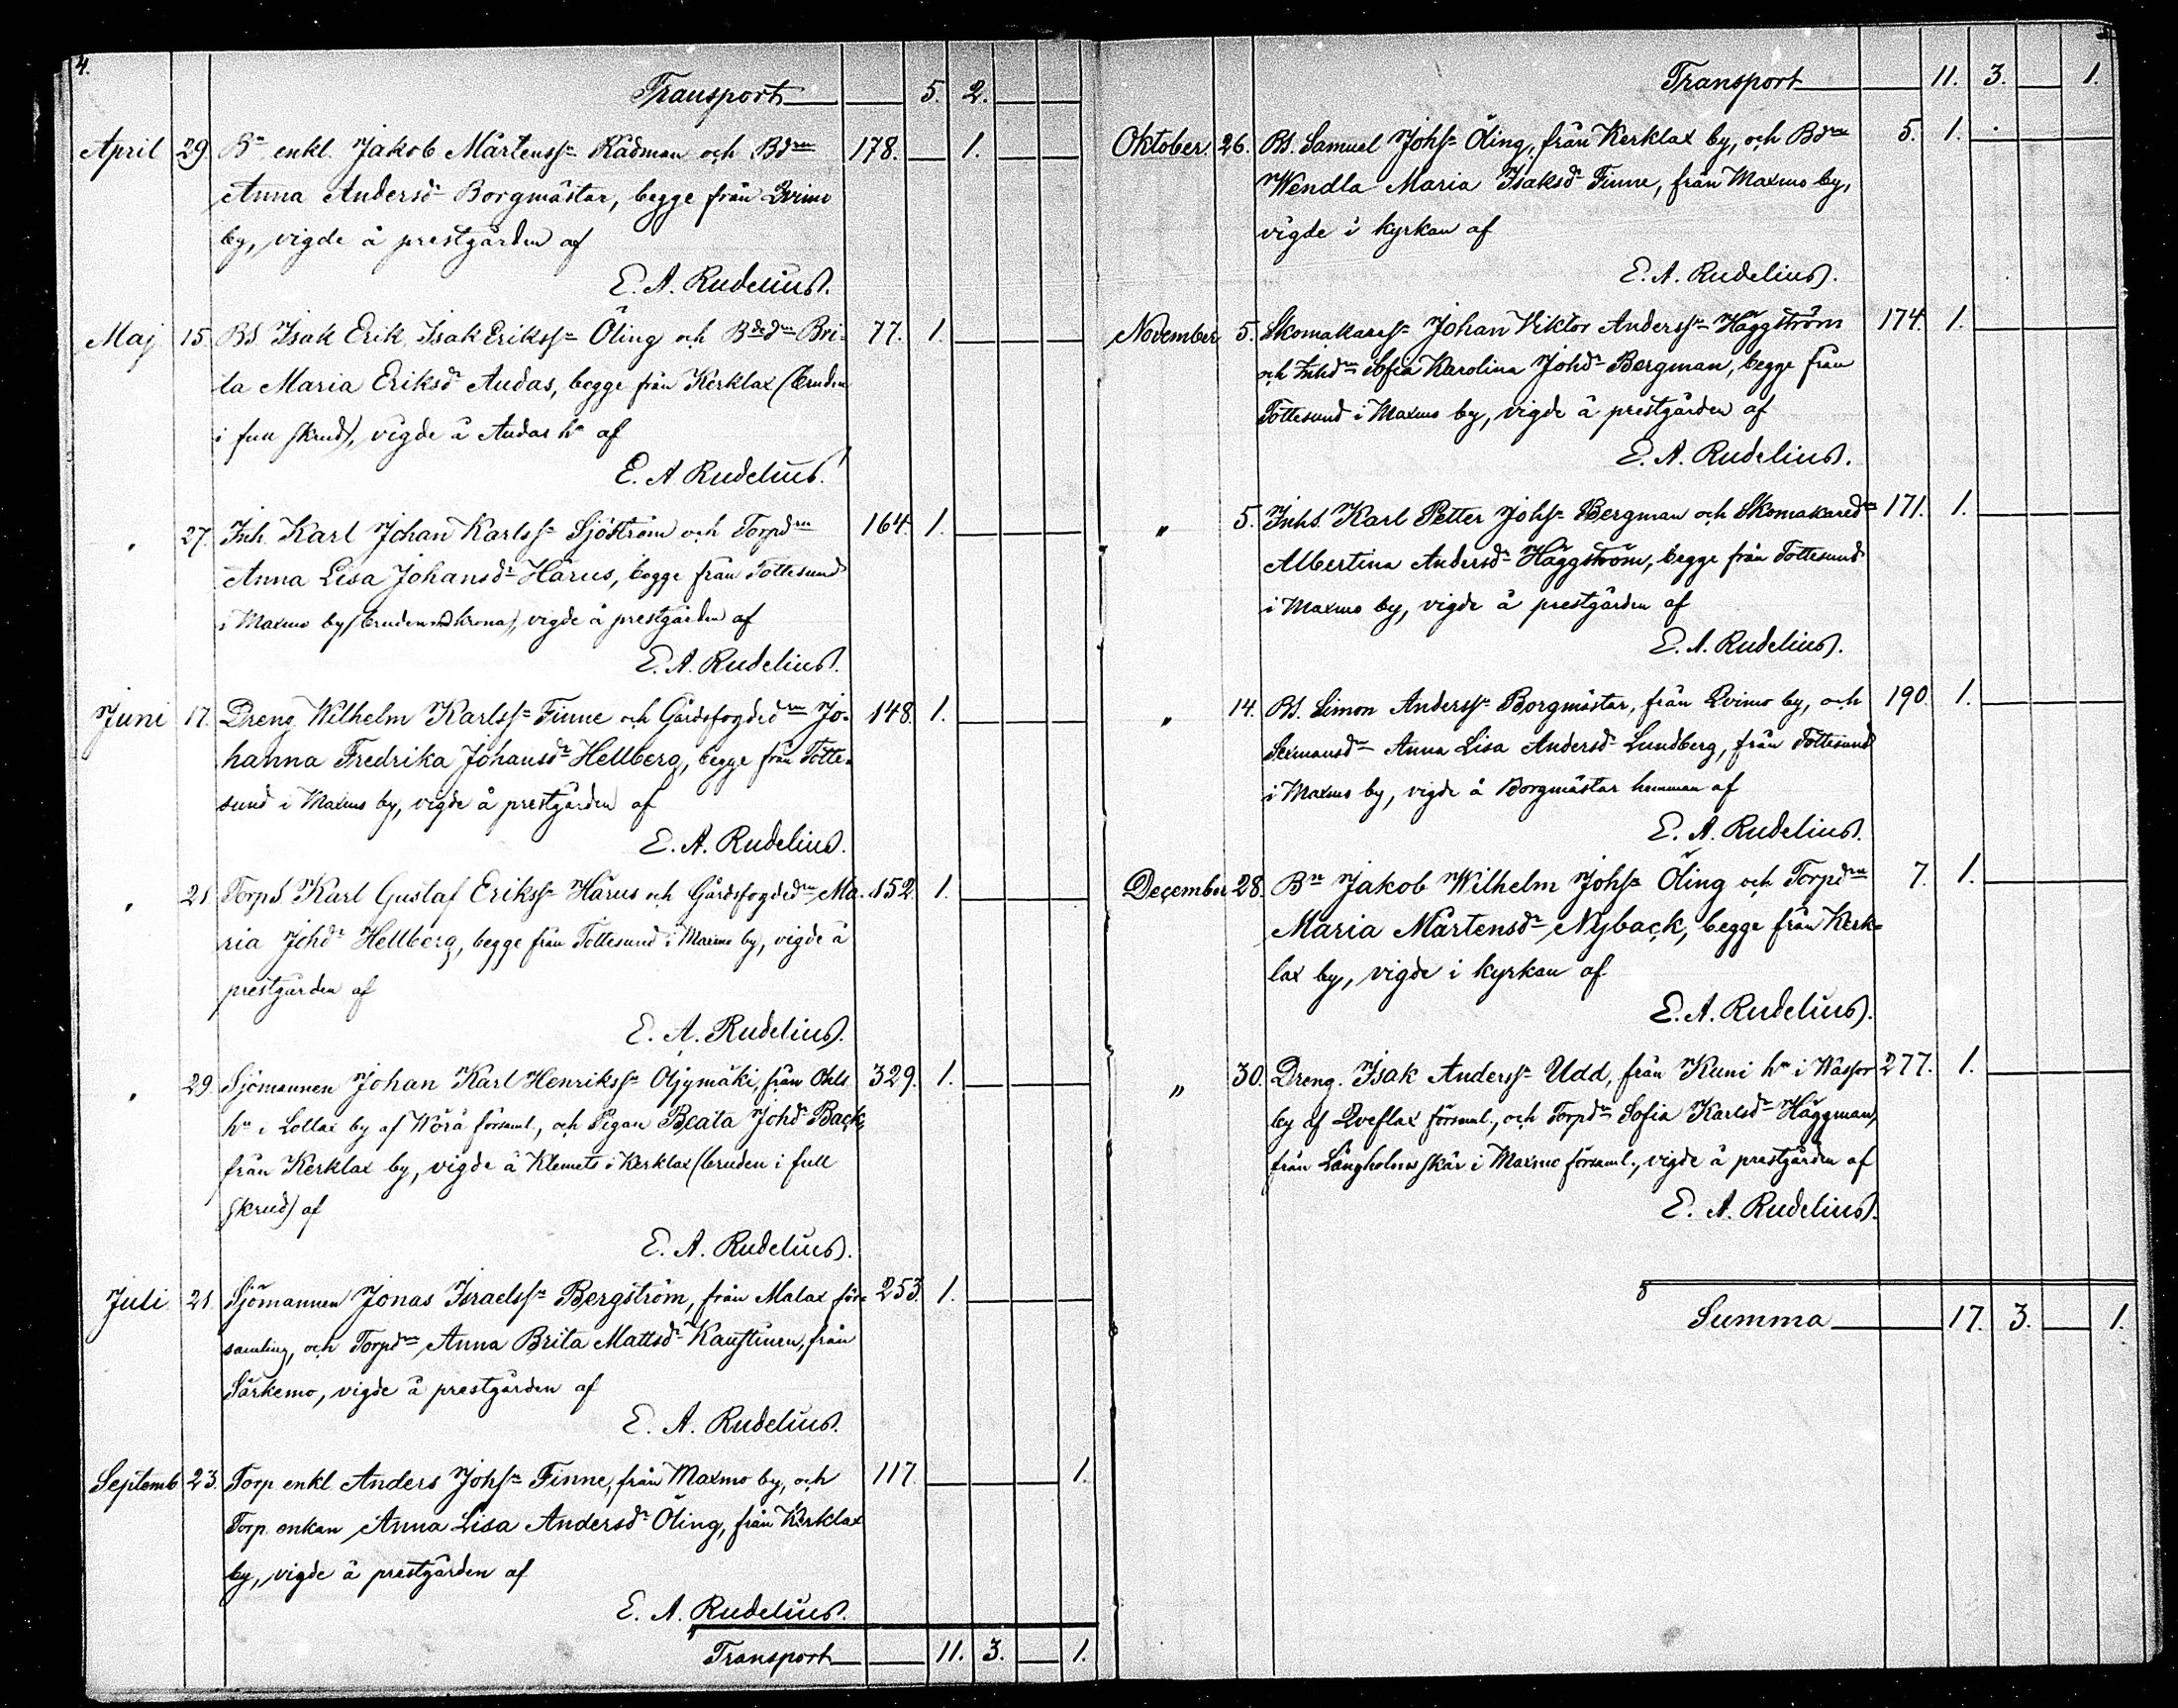 4.
Transport 5. 2.
April 29. Bn enkl. Jakob Mårtensson Rådman och Bdrn 178. 1.
Anna Andersdr Borgmästar, begge från Qvimo
by, vigde å prestgården af
E. A. Rudelius.
Maj 15. BS. Isak Erik Isak Erikssn Öling och Bdedrn Bri- 77. 1.
ta Maria Eriksdr Audas, begge från Kerklax (bruden
i full skrud), vigde å Audas hn af
E. A Rudelius.
" 27. Inh. Karl Johan Karlssn Sjöström och Torpdrn 164. 1.
Anna Lisa Johansdr Härus, begge från Tottesund
i Maxmo by (bruden md krona), vigde å prestgården af
E. A. Rudelius.
Juni 17. Dreng Wilhelm Karlssn Finne och Gårdsfogdedrn Jo- 148. 1.
hanna Fredrika Johansdr Hellberg, begge från Totte-
sund i Maxmo by, vigde å prestgården af
E. A. Rudelius.
" 21. TorpS. Karl Gustaf Erikssn Härus och Gårdsfogdedrn Ma- 152. 1.
ria Johdr Hellberg, begge från Tottesund i Maxmo by, vigde å
prestgården af
E. A. Rudelius.
" 29. Sjömannen Johan Karl Henrikssn Öljymäki, från Ohls 329. 1.
hn i Lollax by af Wörå församl., och Pigan Beata Johdr Back,
från Kerklax by, vigde å Klemets i Kerklax (bruden i full
skrud) af
E. A. Rudelius.
Juli 21. Sjömannen Jonas Israelssn Bergström, från Malax för- 253. 1.
samling, och Torpdrn Anna Brita Mattsdr Kaustinen, från
Särkemo, vigde å prestgården af
E. A. Rudelius.
Septemb. 23. Torp. enkl Anders Johsn Finne, från Maxmo by, och 117. 1.
Torp. enkan Anna Lisa Andersdr Öling, från Kerklax
by, vigde å prestgården af
E. A. Rudelius.
Transport 11. 3. 1.
Transport 11. 3. 1.
Oktober. 26. BS. Samuel Johsn Öling, från Kerklax by, och Bdrn 5. 1.
Wendla Maria Isaksdr Finne, från Maxmo by,
vigde i kyrkan af
E. A. Rudelius.
November 5. Skomakaresn Johan Viktor Anderssn Häggström 174. 1.
och Inhdrn Sofia Karolina Johdr Bergman, begge från
Tottesund i Maxmo by, vigde å prestgården af
E. A. Rudelius.
" 5. InhS. Karl Petter Johsn Bergman och Skomakaredrn 171. 1.
Albertina Andersdr Häggström, begge från Tottesund
i Maxmo by, vigde å prestgården af
E. A. Rudelius.
" 14. BS. Simon Anderssn Borgmästar, från Qvimo by, och 190 1.
Sexmansdrn Anna Lisa Andersdr Lundberg, från Tottesund
i Maxmo by, vigde å Borgmästar hemman af
E. A. Rudelius.
December 28. Bn Jakob Wilhelm Johsn Öling och Torpdrn 7. 1.
Maria Mårtensdr Nyback, begge från Kerk-
lax by, vigde i kyrkan af
E. A. Rudelius.
" 30. Dreng. Isak Anderssn Udd, från Kuni hn i Wassor 277. 1.
by af Qveflax församl., och Torpdrn Sofia Karlsdr Häggman,
från Långholm skär i Maxmo församl., vigde å prestgården af
E. A. Rudelius.
Summa 17. 3. 1.